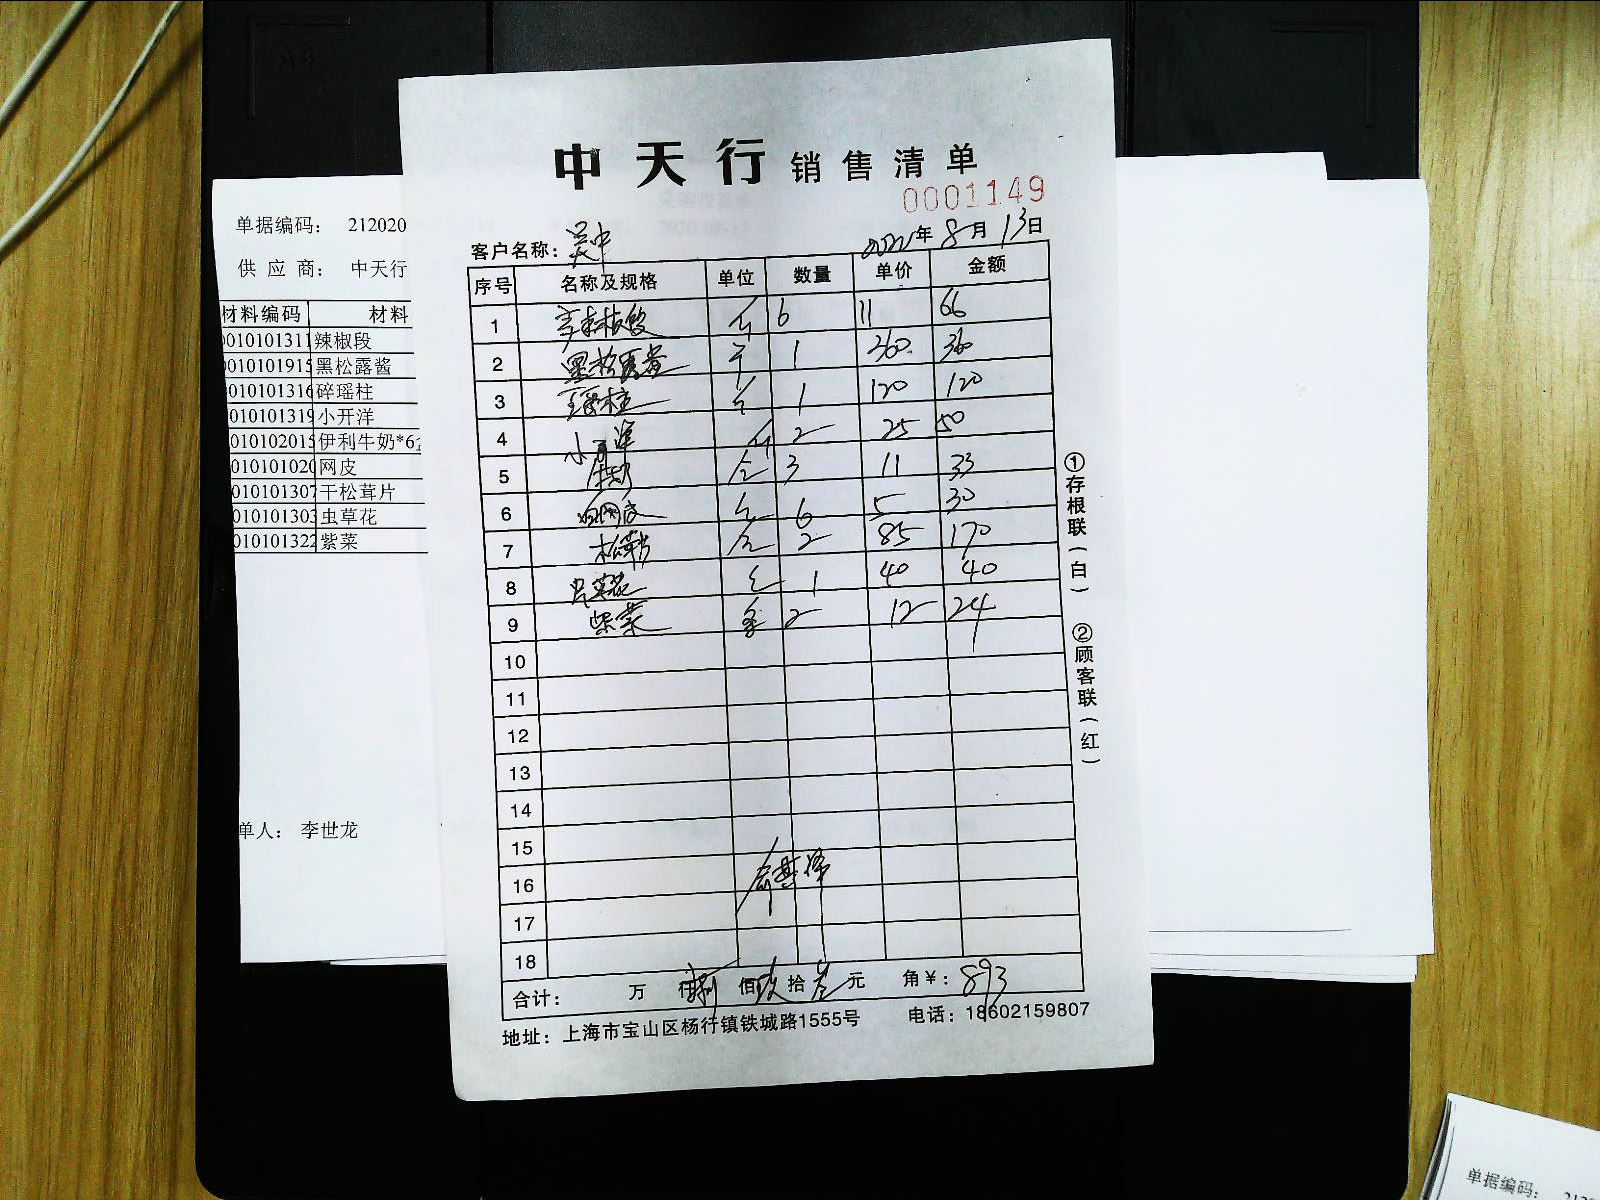 中天行 销售清单
0001149
客户名称： 吴中 年 8 月 13 日
序号 名称及规格 单位 数量 单价 金额
1 6 11 66
2 黑松露酱 1 360 360
3 瑶柱 1 120 120
4 小开洋 2 25 50
5 牛奶 3 11 33
6 白网皮 6 5 30
7 松茸片 2 85 170
8 虫草花 1 40 40
9 紫菜 2 12 24
10
11
12
13
14
15
16
17
18
合计： 万 仟 捌 佰 玖 拾 叁 元 角 ￥： 893
地址：上海市宝山区杨行镇铁城路1555号 电话：18602159807
①存根联（白）
②顾客联（红）
单据编码： 212020
供 应 商： 中天行
材料编码 材料
010101311 辣椒段
010101915 黑松露酱
010101316 碎瑶柱
010101319 小开洋
010102015 伊利牛奶*6
010101020 网皮
010101307 干松茸片
010101303 虫草花
010101322 紫菜
单人： 李世龙
单据编码：